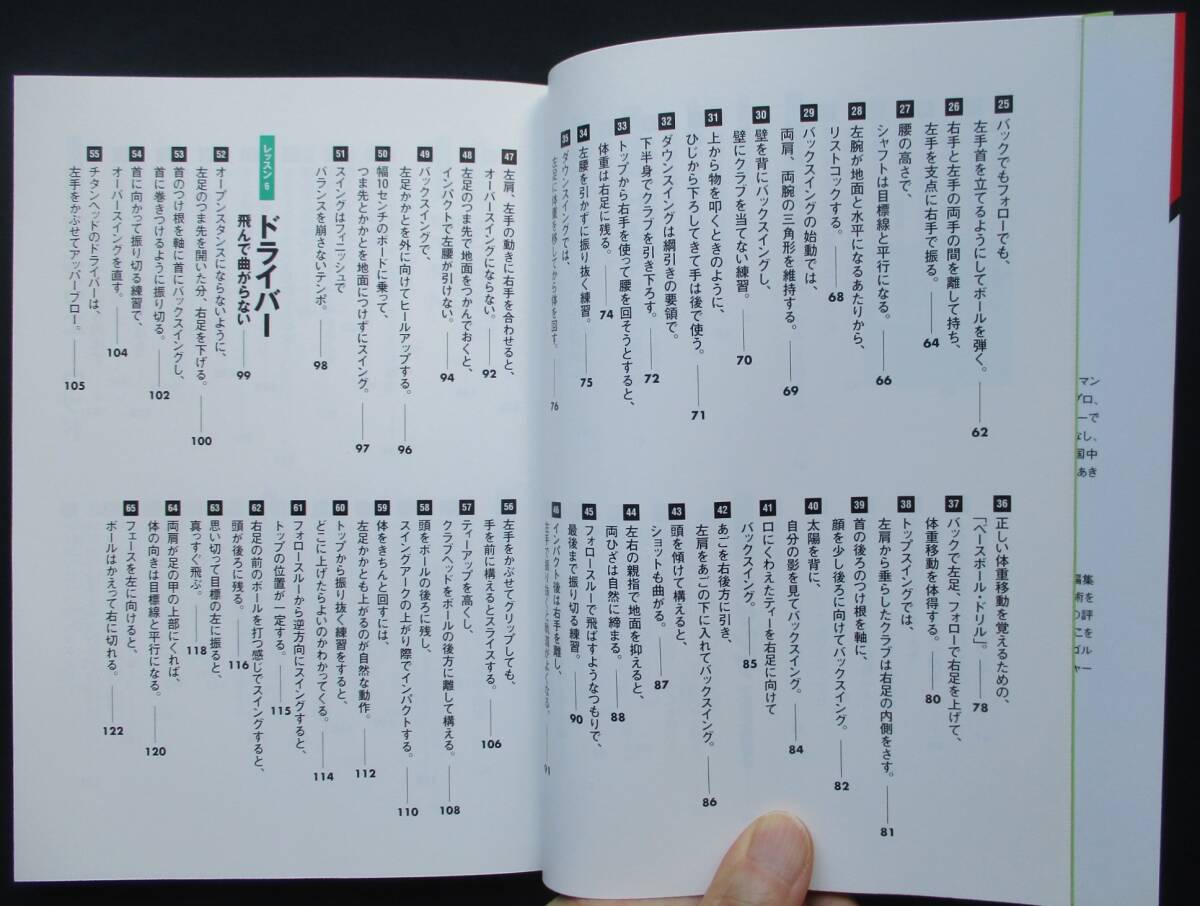 25
バックでもフォローでも、
左手首を立てるようにしてボールを弾く。 62
26
右手と左手の両手の間を離して持ち、
左手を支点に右手で振る。 64
27
腰の高さで、
シャフトは目標線と平行になる。 66
28
左腕が地面と水平になるあたりから、
リストコックする。 68
29
バックスイングの始動では、
両肩、両腕の三角形を維持する。 69
30
壁を背にバックスイングし、
壁にクラブを当てない練習。 70
31
上から物を叩くときのように、
ひじから下ろしてきて手は後で使う。 71
32
ダウンスイングは綱引きの要領で。
下半身でクラブを引き下ろす。 72
33
トップから右手を使って腰を回そうとすると、
体重は右足に残る。 74
34
左腰を引かずに振り抜く練習。 75
35
ダウンスイングでは、
左足に体重を移してから体を回す。 76
36
正しい体重移動を覚えるための、
「ベースボール・ドリル」。 78
37
バックで左足、フォローで右足を上げて、
体重移動を体得する。 80
38
トップスイングでは、
左肩から垂らしたクラブは右足の内側をさす。 81
39
首の後ろのつけ根を軸に、
顔を少し後ろに向けてバックスイング。 82
40
太陽を背に、
自分の影を見てバックスイング。 84
41
口にくわえたティーを右足に向けて
バックスイング。 85
42
あごを右後方に引き、
左肩をあごの下に入れてバックスイング。 86
43
頭を傾けて構えると、
ショットも曲がる。 87
44
左右の親指で地面を抑えると、
両ひざは自然に締まる。 88
45
フォロースルーで飛ばすようなつもりで、
最後まで振り切る練習。 90
46
インパクト後は右手を離し、
91
47
左肩、左手の動きに右手を合わせると、
オーバースイングにならない。 92
48
左足のつま先で地面をつかんでおくと、
インパクトで左腰が引けない。 94
49
バックスイングで、
左足かかとを外に向けてヒールアップする。 96
50
幅10センチのボードに乗って、
つま先とかかとを地面につけずにスイング。 97
51
スイングはフィニッシュで
バランスを崩さないテンポ。 98
レッスン6
ドライバー
飛んで曲がらない 99
52
オープンスタンスにならないように、
左足のつま先を開いた分、右足を下げる。 100
53
首のつけ根を軸に首にバックスイングし、
首に巻きつけるように振り切る。 102
54
首に向かって振り切る練習で、
オーバースイングを直す。 104
55
チタンヘッドのドライバーは、
左手をかぶせてアッパーブロー。 105
56
左手をかぶせてグリップしても、
手を前に構えるとスライスする。 106
57
ティーアップを高くし、
クラブヘッドをボールの後方に離して構える。 108
58
頭をボールの後ろに残し、
スイングアークの上がり際でインパクトする。 110
59
体をきちんと回すには、
左足かかとも上がるのが自然な動作。 112
60
トップから振り抜く練習をすると、
どこに上げたらよいのかわかってくる。 114
61
フォロースルーから逆方向にスイングすると、
トップの位置が一定する。 115
62
右足の前のボールを打つ感じでスイングすると、
頭が後ろに残る。 116
63
思い切って目標の左に振ると、
真っすぐ飛ぶ。 118
64
両肩が足の甲の上部にくれば、
体の向きは目標線と平行になる。 120
65
フェースを左に向けると、
ボールはかえって右に切れる。 122
マン
プロ、
ーで
なし、
国中
あき
編集
術を
の評
こを
ゴル
ャー